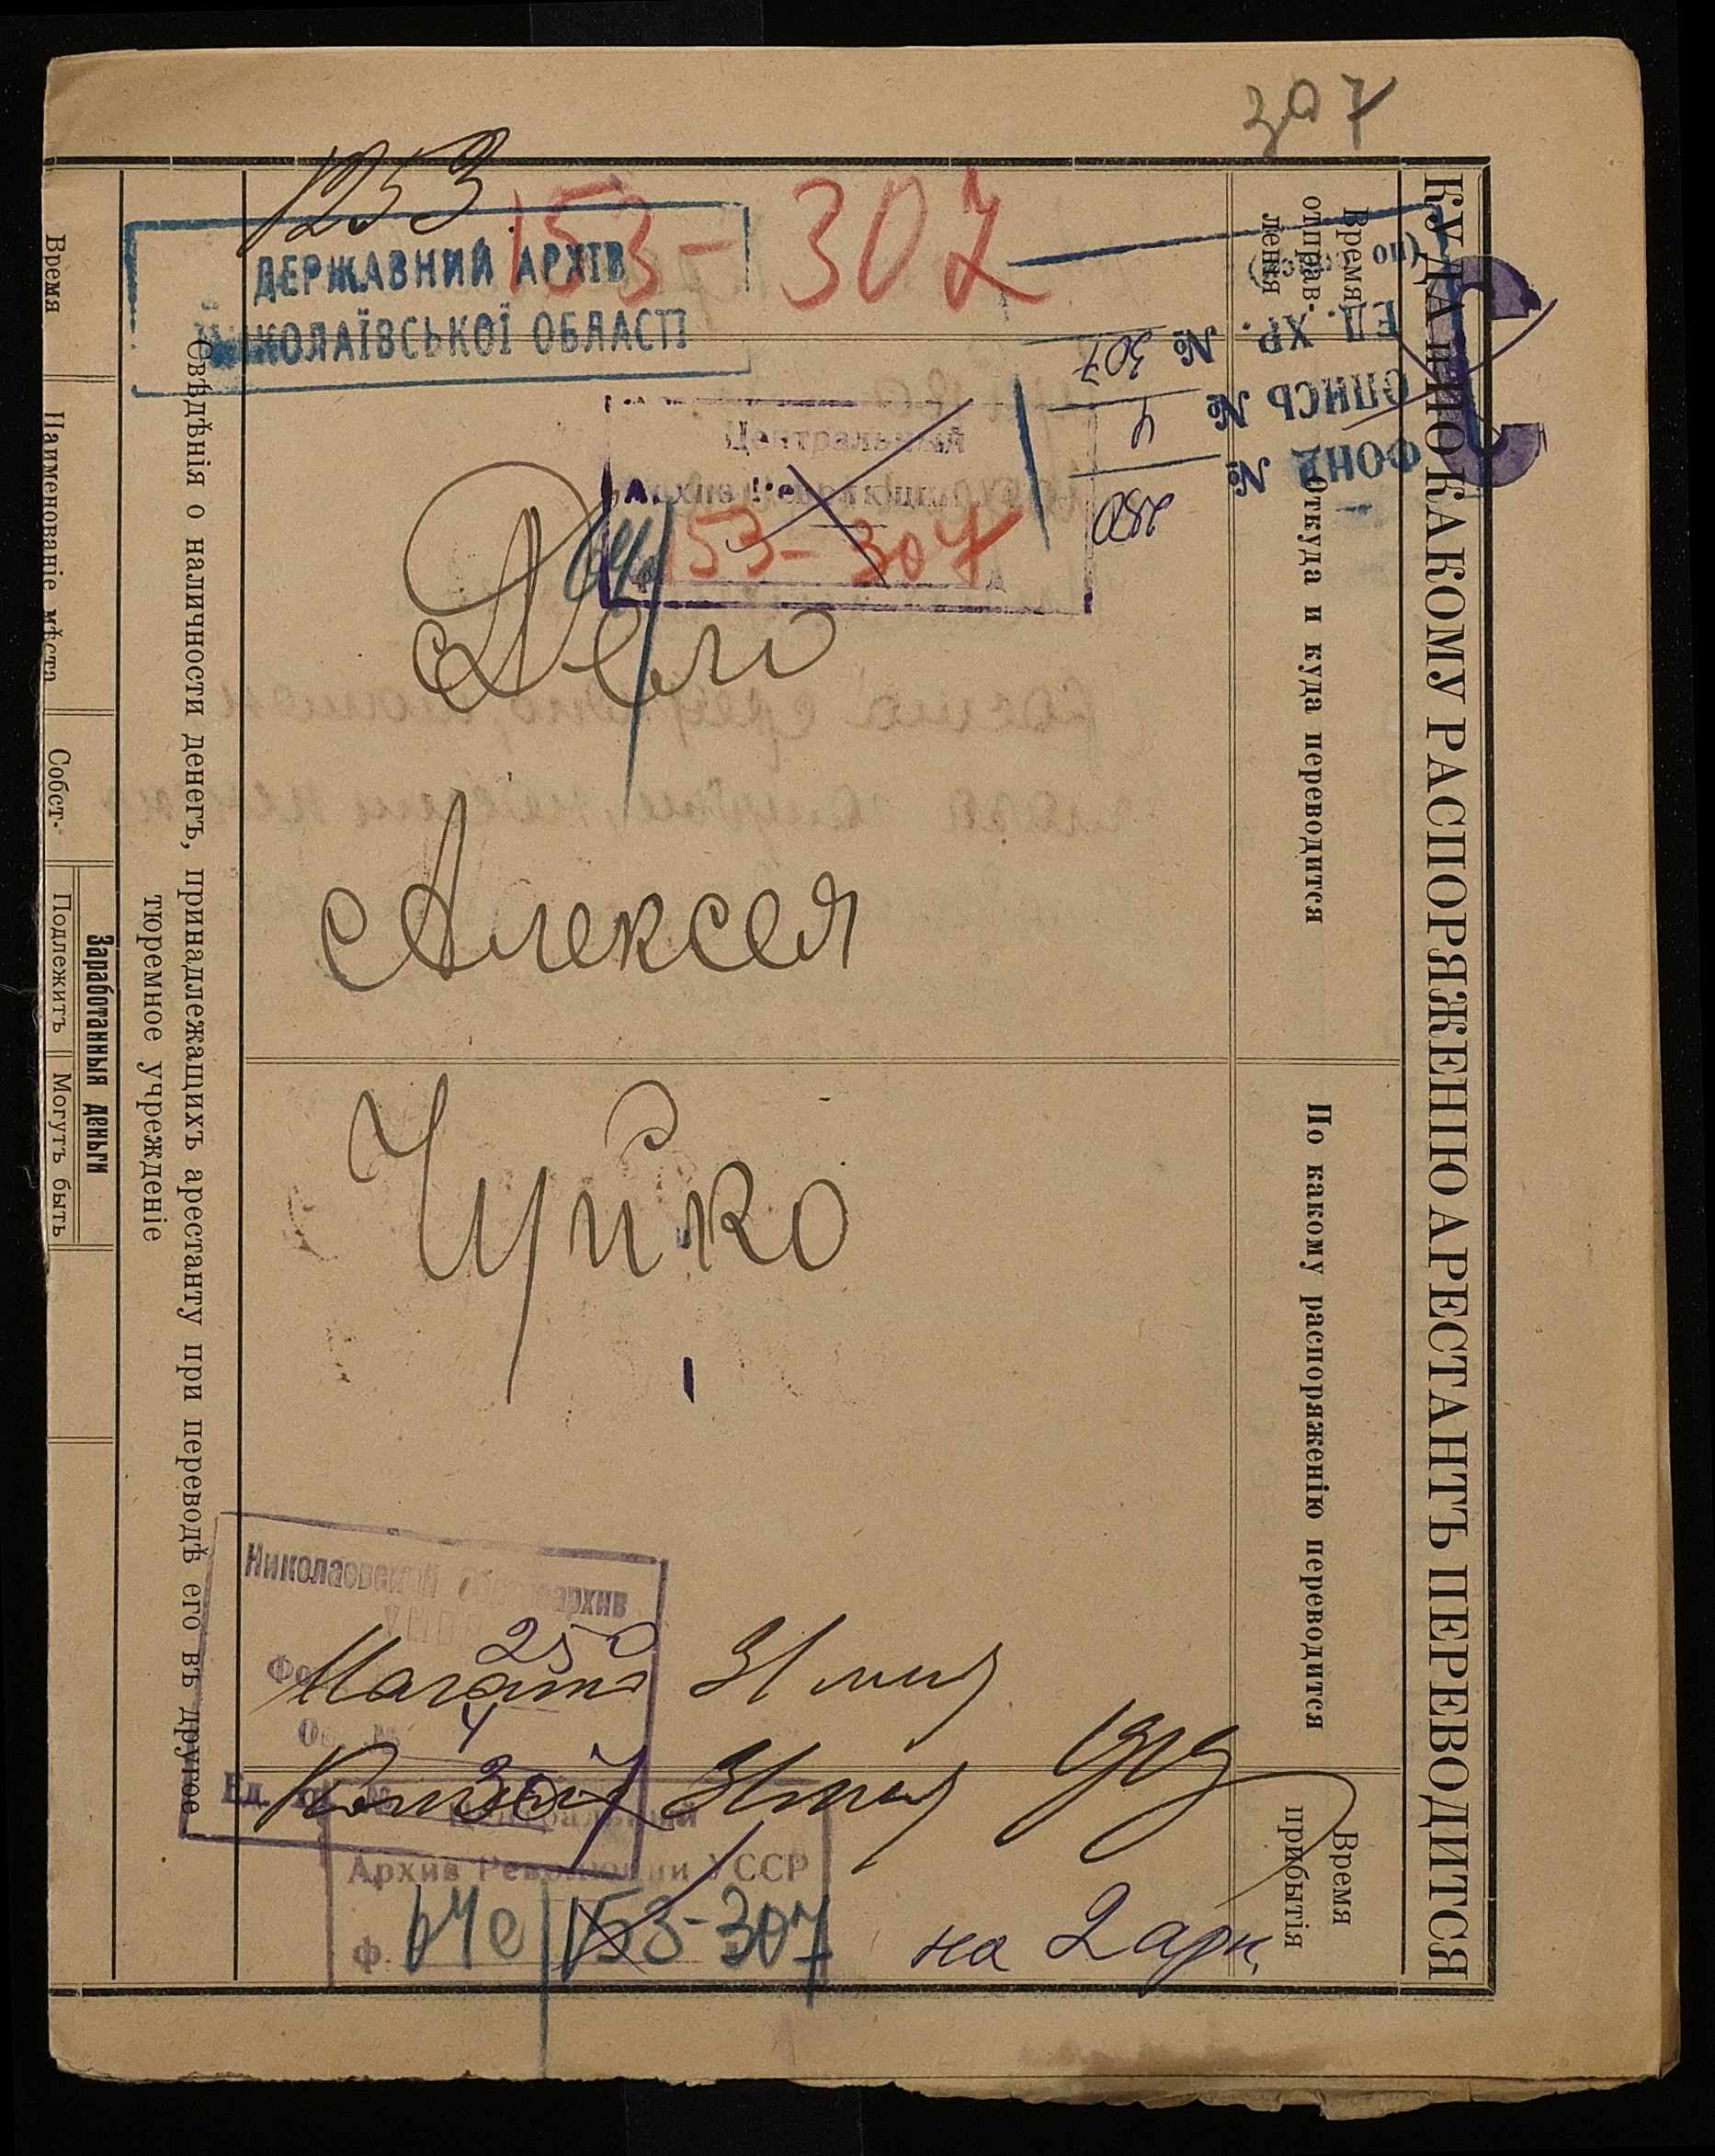 307
1253
153-307
ДЕРЖАВНИЙ АРХІВ
МИКОЛАЇВСЬКОЇ ОБЛАСТІ
ФОНД № 250
ОПИСЬ № 4
ЕД. ХР. № 307
Центральный
Архив Революции
153-307
Дело
Алексея
Чуйко
Николаевский облгосархив
250
Начато 31 мая
4
Ед. хр. № 307
31 мая 1919
Центральный
Архив Революции УССР
ф. 153-307
на 2 арк.
КУДА и ПО КАКОМУ РАСПОРЯЖЕНІЮ АРЕСТАНТЪ ПЕРЕВОДИТСЯ
Время отправ-
ленія
Откуда и куда переводится
По какому распоряженію переводится
Время
прибытія
Свѣдѣнія о наличности денегъ, принадлежащихъ арестанту при переводѣ его въ другое
тюремное учрежденіе
Время
Наименованіе мѣста
Собст-
Заработанныя деньги
Подлежитъ
Могутъ быть